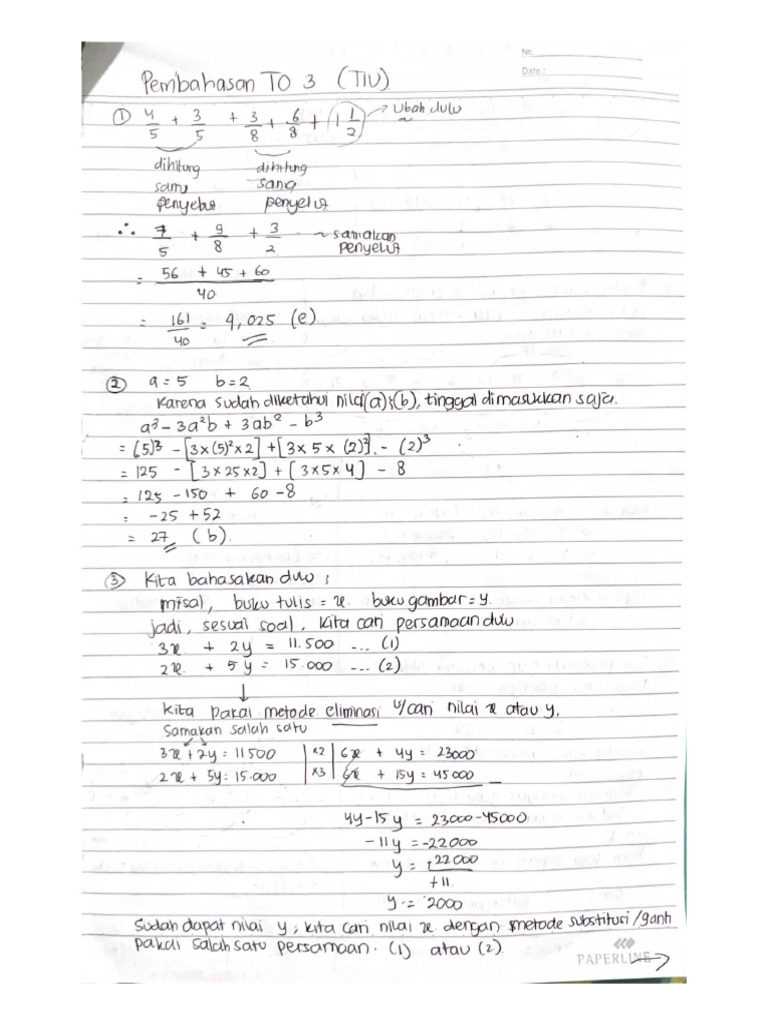 No.
Date :
Pembahasan TO 3 (TIU)
① 4/5 + 3/5 + 3/8 + 6/8 + 1 1/2 → Ubah dulu
dihitung dihitung
sama sama
penyebut penyebut
∴ 7/5 + 9/8 + 3/2 ~ samakan penyebut
= 56 + 45 + 60 / 40
= 161/40 = 4,025 (e)
② a = 5 b = 2
Karena sudah diketahui nilai (a) & (b), tinggal dimasukkan saja.
a³ - 3a²b + 3ab² - b³
= (5)³ - [3×(5)²×2] + [3×5×(2)²] - (2)³
= 125 - [3×25×2] + [3×5×4] - 8
= 125 - 150 + 60 - 8
= -25 + 52
= 27 (b).
③ Kita bahasakan dulu ;
misal, buku tulis = x. buku gambar = y.
jadi, sesuai soal, kita cari persamaan dulu
3x + 2y = 11.500 ... (1)
2x + 5y = 15.000 ... (2)
↓
Kita pakai metode eliminasi u/cari nilai x atau y.
Samakan salah satu
3x + 2y = 11500 | ×2 | 6x + 4y = 23000
2x + 5y = 15.000 | ×3 | 6x + 15y = 45000 _
4y - 15y = 23000 - 45000
-11y = -22000
y = +22000
+11
y = 2000
Sudah dapat nilai y, kita cari nilai x dengan metode substitusi/ganti
pakai salah satu persamaan. (1) atau (2).
PAPERLINE →